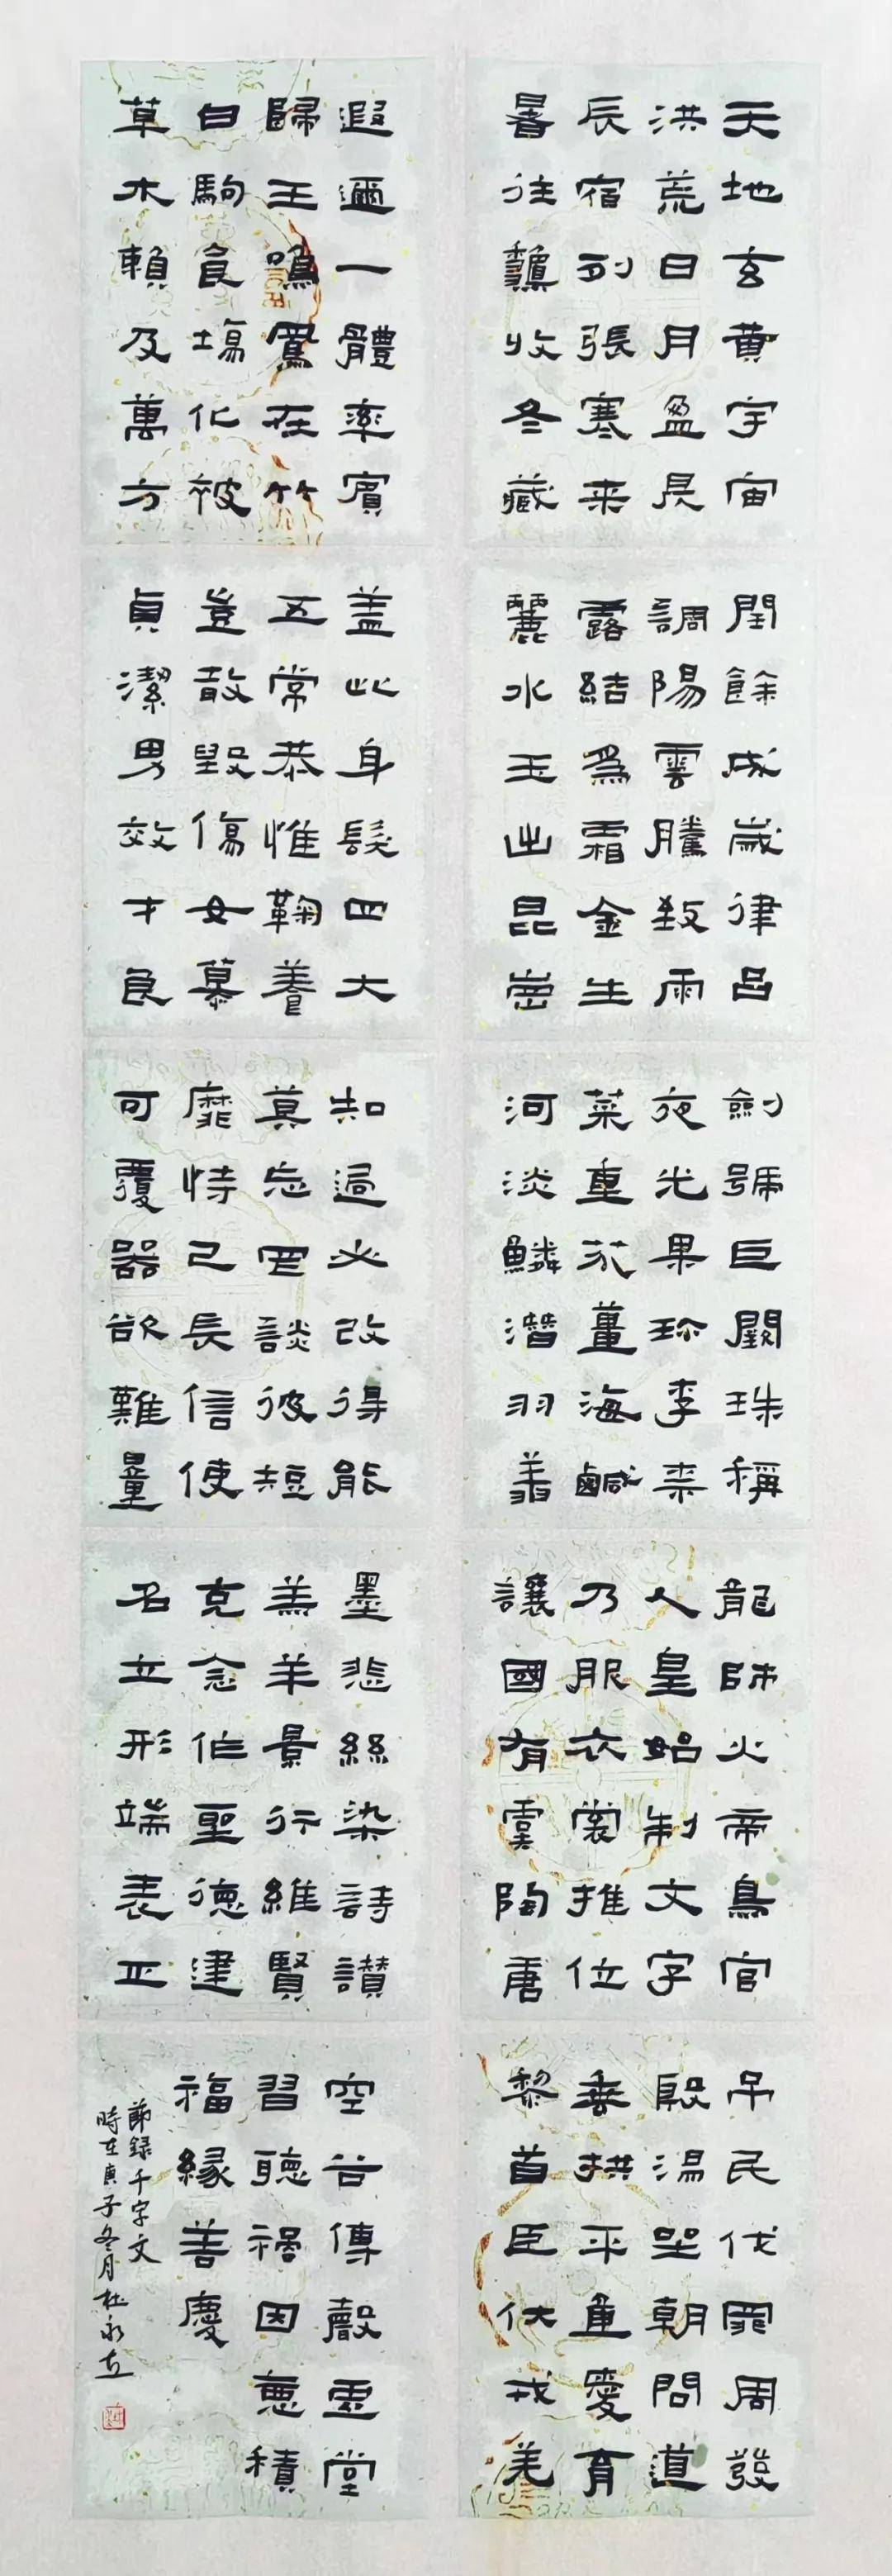 天地玄黄宇宙
洪荒日月盈昃
辰宿列張寒来
暑往龝收冬藏
閏餘成歲律吕
調陽雲騰致雨
露結爲霜金生
麗水玉出昆崗
劍號巨闕珠稱
夜光果珍李柰
菜重芥薑海鹹
河淡鱗潛羽翔
龍師火帝鳥官
人皇始制文字
乃服衣裳推位
讓國有虞陶唐
吊民伐罪周發
殷湯坐朝問道
垂拱平章愛育
黎首臣伏戎羌
遐邇一體率賓
歸王鳴鳳在竹
白駒食場化被
草木賴及萬方
盖此身髮四大
五常恭惟鞠養
豈敢毀傷女慕
貞潔男效才良
知過必改得能
莫忘罔談彼短
靡恃己長信使
可覆器欲難量
墨悲絲染詩讃
羔羊景行維賢
克念作聖德建
名立形端表正
空谷傳聲虛堂
習聽禍因惡積
福緣善慶
節録千字文
時在庚子冬月杜永